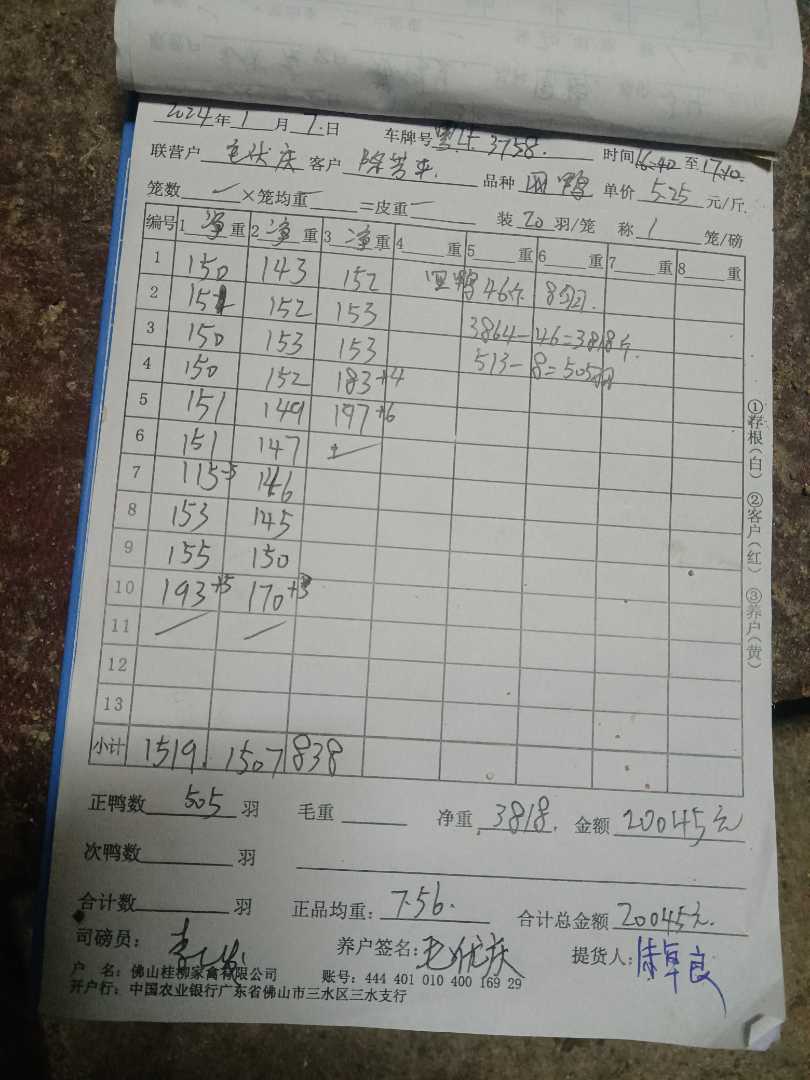 2024年1月7日 车牌号 3758. 时间16:40至17:10
联营户 庆 客户 陈 品种 鸭 单价 5.25 元/斤
笼数 ×笼均重 =皮重 装 20 羽/笼 称 1 笼/磅
编号 1 净 重 2 净 重 3 净 重 4 重 5 重 6 重 7 重 8 重
1 150 143 152 鸭 46斤 8
2 152 153
3 150 153 153 3864-46=3818斤.
4 150 152 183+4 513-8=505羽
5 151 149 197+6
6 151 147
7 115-5 146
8 153 145
9 155 150
10 193+5 170+3
11
12
13
小计 1519. 1507 838
正鸭数 505 羽 毛重 净重 3818. 金额 20045元
次鸭数 羽
合计数 羽 正品均重: 7.56. 合计总金额 20045元.
司磅员: 李 养户签名: 庆 提货人: 卓良
户 名: 佛山桂柳家禽有限公司 账号: 444 401 010 400 169 29
开户行: 中国农业银行广东省佛山市三水区三水支行
①存根(白) ②客户(红) ③养户(黄)